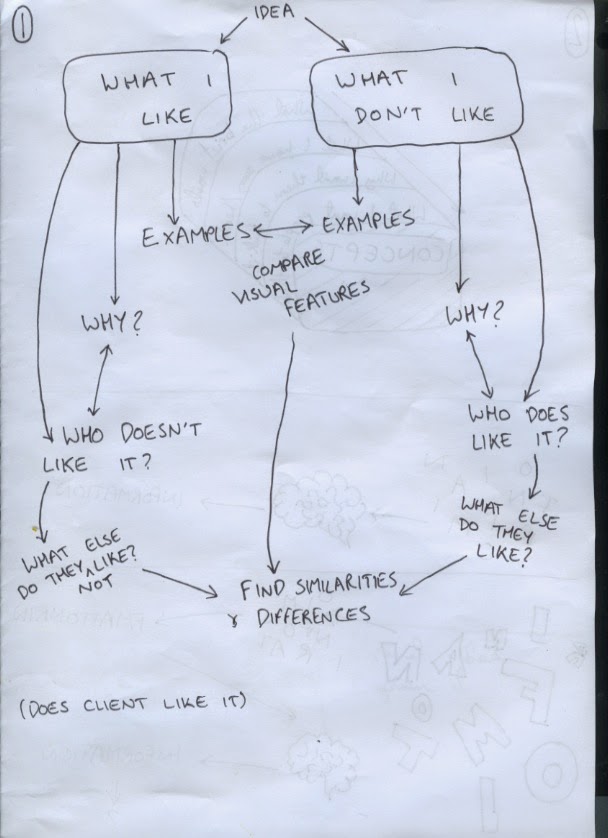 1
IDEA
WHAT I
LIKE
WHAT I
DON'T LIKE
EXAMPLES
EXAMPLES
COMPARE
VISUAL
FEATURES
WHY?
WHY?
WHO DOESN'T
LIKE IT?
WHO DOES
LIKE IT?
WHAT ELSE
DO THEY NOT LIKE?
WHAT ELSE
DO THEY
LIKE?
FIND SIMILARITIES
& DIFFERENCES
(DOES CLIENT LIKE IT)